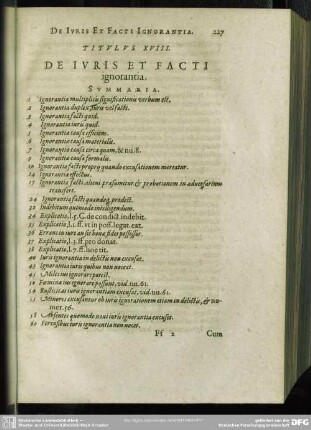 DE IVRIS ET FACTI IGNORANTIA. 227
TITVLVS XVIII.
DE IVRIS ET FACTI
ignorantia.
SVMMARIA.
1 Ignorantia multiplicis significationis verbum est.
2 Ignorantia duplex iuris vel facti.
3 Ignorantia facti quid.
4 Ignorantia iuris quid.
5 Ignorantiæ causa efficiens.
6 Ignorantiæ causa materialis.
7 Ignorantiæ causa circa quam, & nu. 8.
9 Ignorantiæ causa formalis.
10 Ignorantia facti proprij quando excusationem mereatur.
14 Ignorantiæ effectus.
15 Ignorantia facti alieni præsumitur, & probationem in aduersarium
transfert.
24 Ignorantia facti quandoq; prodest.
22 Indebitum quomodo intelligendum.
26 Explicatio, l. 5. C. de condict. indebit.
35 Explicatio, l. 1. ff. vt in poss. legat. eat.
36 Errans in iure an sit bonæ fidei possessor.
37 Explicatio, l. 3. ff. pro donat.
38 Explicatio, l. 7. ff. hoc tit.
40 Iuris ignorantia in delictis non excusat.
43 Ignorantia iuris quibus non nocet.
45 Miles ius ignorare potest.
50 Fœmina ius ignorare possunt, vid. nu. 61.
54 Rusticitas iuris ignorantiam excusat, vid. nu. 61.
55 Minores excusantur ob iuris ignorationem etiam in delictis, & nu-
mer. 56.
58 Absentes quomodo noui iuris ignorantia excuset.
60 Forensibus iuris ignorantia non nocet.
Ff 2 Cum